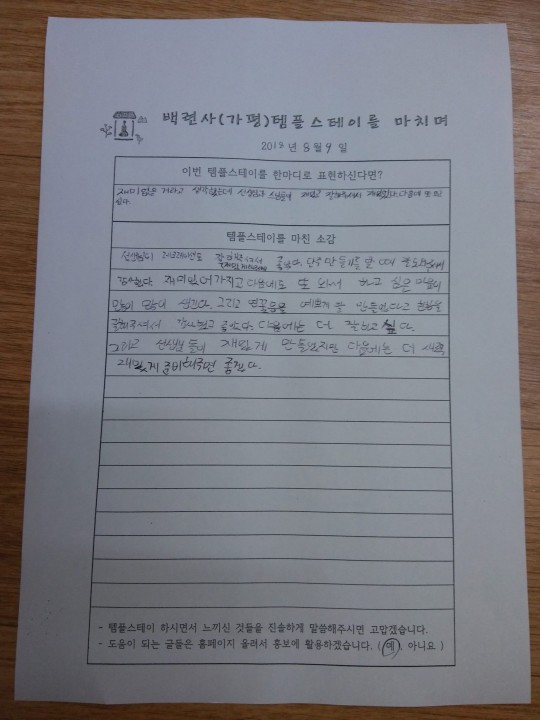 백련사(가평)템플스테이를 마치며
2018년 8월 9일
이번 템플스테이를 한마디로 표현하신다면?
재미없을 거라고 생각했는데 선생님과 스님들이 재밌고 잘해주셔서 재밌었다. 다음에 또 오고
싶다.
템플스테이를 마친 소감
선생님이 잘해주셔서 좋았다. 만들기를 할 때
감사했다. 재미있어가지고 다음에도 또 와서 하고 싶은 마음이
많이 많이 생긴다. 그리고 연꽃등을 예쁘게 잘 만들었다고 칭찬을
좋았다. 다음에는 더 잘하고 싶다.
그리고 선생님들이 재밌게 만들었지만 다음에는 더
재밌게 준비해주면 좋겠다.
- 템플스테이 하시면서 느끼신 것들을 진솔하게 말씀해주시면 고맙겠습니다.
- 도움이 되는 글들은 홈페이지 올려서 홍보에 활용하겠습니다. ( 예, 아니요 )